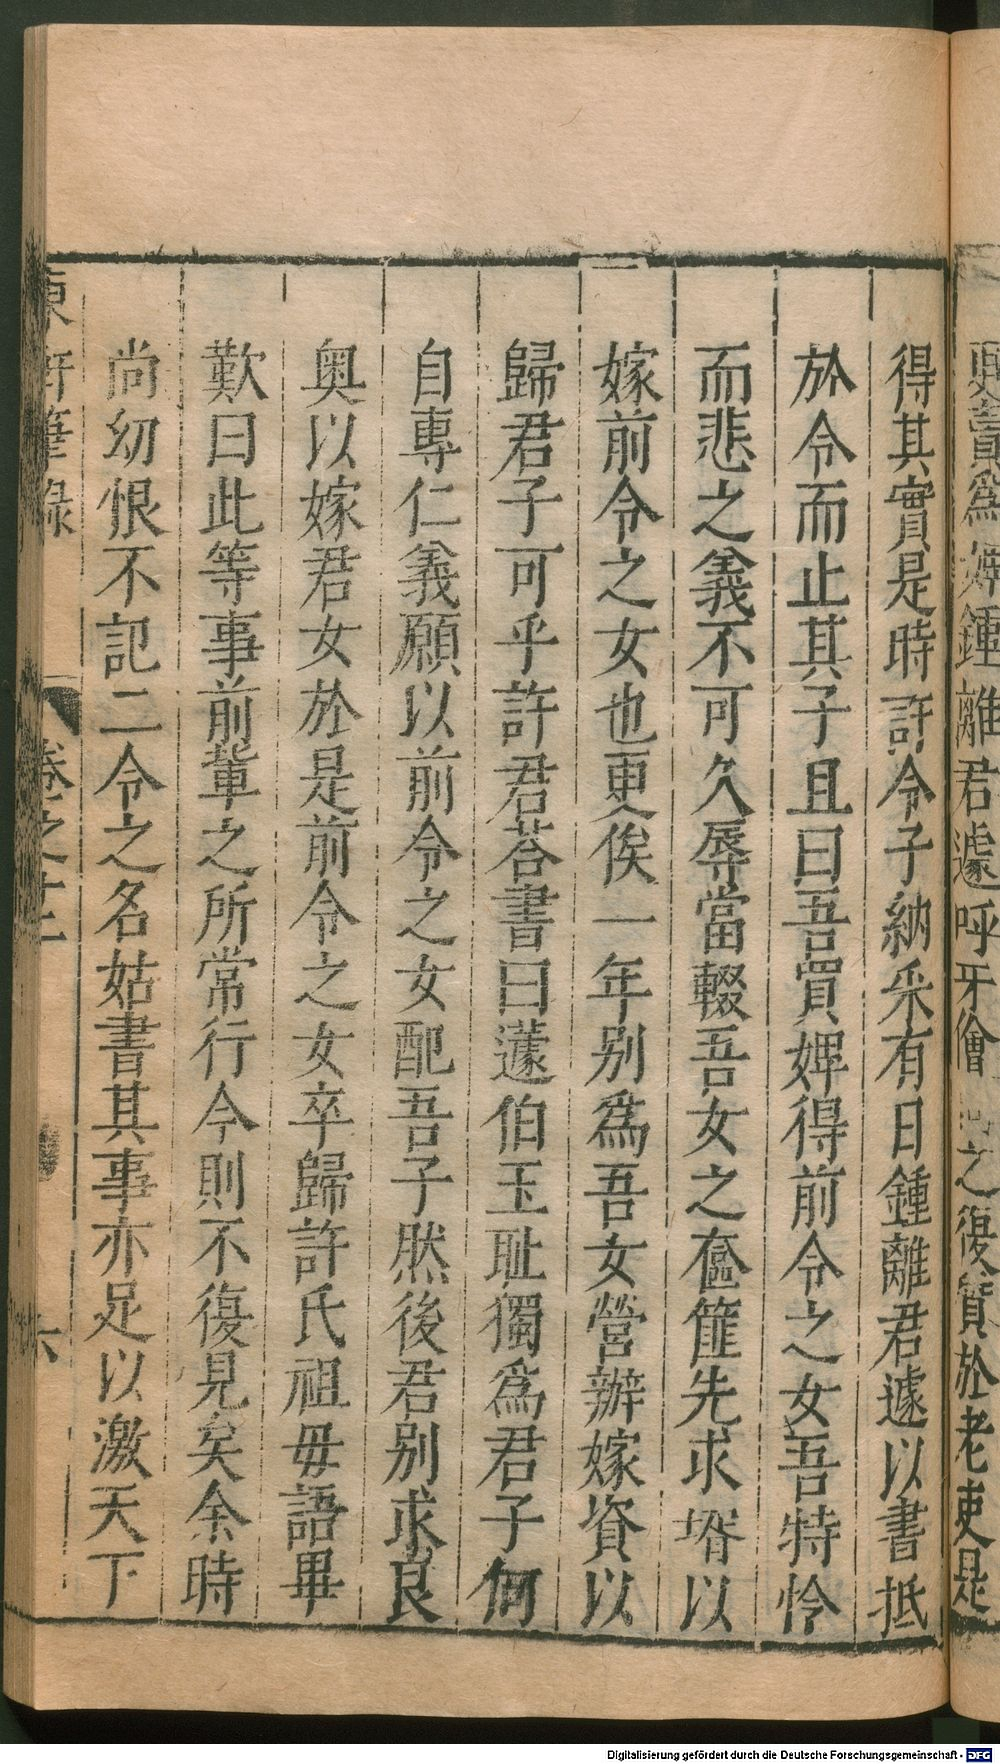 典賣爲婢鍾離君遽呼牙儈之復質於老吏是
得其實是時許令子納采有日鍾離君遽以書抵
於令而止其子且曰吾買婢得前令之女吾特怜
而悲之義不可久辱當輟吾女之奩篚先求壻以
嫁前令之女也更俟一年别爲吾女營辦嫁資以
歸君子可乎許君荅書曰蘧伯玉耻獨爲君子何
自專仁義願以前令之女配吾子然後君别求良
奥以嫁君女於是前令之女卒歸許氏祖毋語畢
歎曰此等事前輩之所常行今則不復見矣余時
尚幼恨不記二令之名姑書其事亦足以激天下
東軒筆録 卷之十二 六
Digitalisierung gefördert durch die Deutsche Forschungsgemeinschaft - DFG